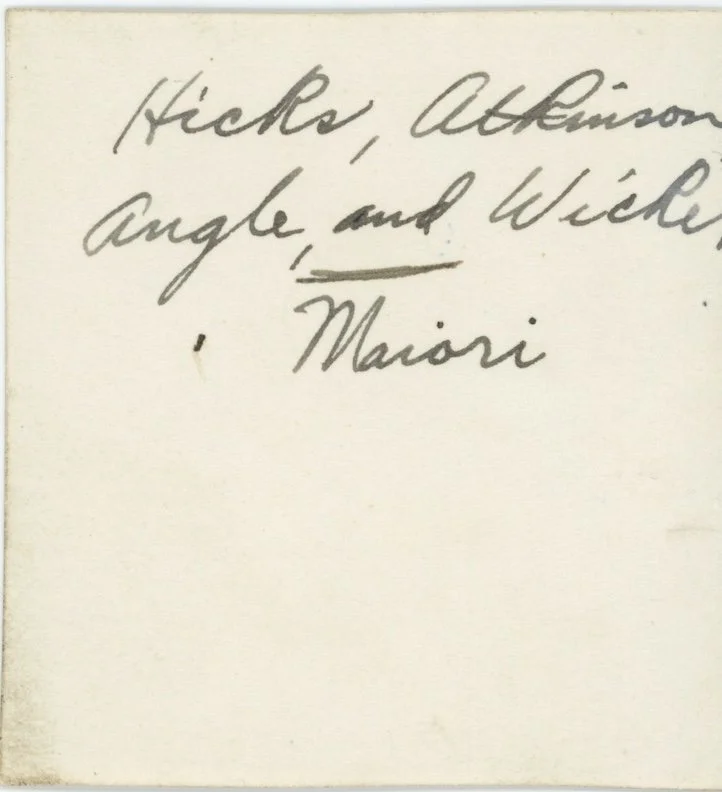 Hicks, Atkinson
Angle, and
Maiori